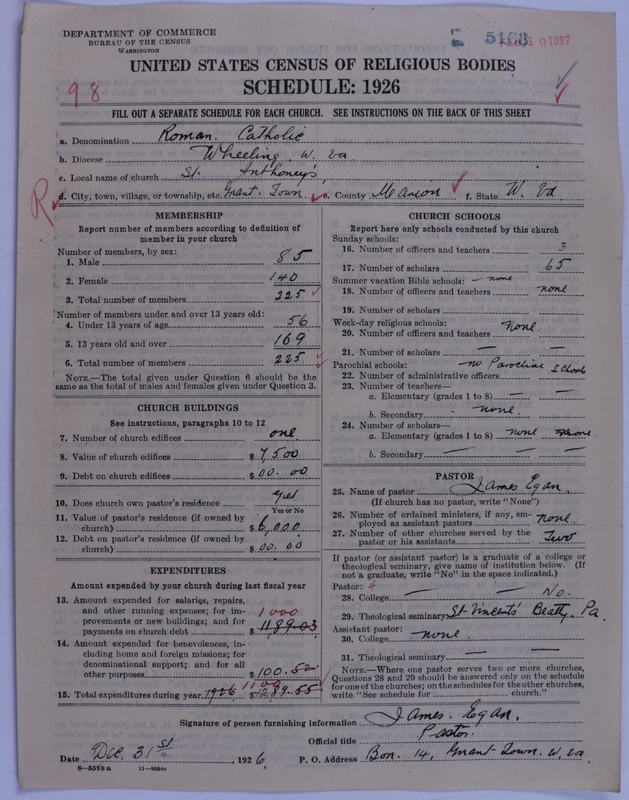 DEPARTMENT OF COMMERCE
BUREAU OF THE CENSUS
WASHINGTON
5168
1927
UNITED STATES CENSUS OF RELIGIOUS BODIES
SCHEDULE: 1926
98
FILL OUT A SEPARATE SCHEDULE FOR EACH CHURCH. SEE INSTRUCTIONS ON THE BACK OF THIS SHEET
a. Denomination Roman Catholic
b. Diocese Wheeling W. Va
c. Local name of church St. Anthoney's
R
d. City, town, village, or township, etc. Grant Town e. County Marion f. State W. Va
MEMBERSHIP
Report number of members according to definition of member in your church
Number of members, by sex:
1. Male 85
2. Female 140
3. Total number of members 225
Number of members under and over 13 years old:
4. Under 13 years of age 56
5. 13 years old and over 169
6. Total number of members 225
NOTE.—The total given under Question 6 should be the same as the total of males and females given under Question 3.
CHURCH BUILDINGS
See instructions, paragraphs 10 to 12
7. Number of church edifices one
8. Value of church edifices $ 7,500
9. Debt on church edifices $ 00.00
10. Does church own pastor's residence yes
Yes or No
11. Value of pastor's residence (if owned by church) $ 6,000
12. Debt on pastor's residence (if owned by church) $ 00.00
EXPENDITURES
Amount expended by your church during last fiscal year
13. Amount expended for salaries, repairs, and other running expenses; for improvements or new buildings; and for payments on church debt $ 1189.03
1000
14. Amount expended for benevolences, including home and foreign missions; for denominational support; and for all other purposes $ 100.52
15. Total expenditures during year 1926 1100 $ 1289.55
CHURCH SCHOOLS
Report here only schools conducted by this church
Sunday schools:
16. Number of officers and teachers 3
17. Number of scholars 65
Summer vacation Bible schools: — none
18. Number of officers and teachers none
19. Number of scholars
Week-day religious schools:
20. Number of officers and teachers None
21. Number of scholars — —
Parochial schools: no Parochial Schools
22. Number of administrative officers
23. Number of teachers—
a. Elementary (grades 1 to 8) — —
b. Secondary - none.
24. Number of scholars—
a. Elementary (grades 1 to 8) none none.
b. Secondary — — —
PASTOR
25. Name of pastor James Egan.
(If church has no pastor, write "None")
26. Number of ordained ministers, if any, employed as assistant pastors none.
27. Number of other churches served by the pastor or his assistants Two
If pastor (or assistant pastor) is a graduate of a college or theological seminary, give name of institution below. (If not a graduate, write "No" in the space indicated.)
Pastor:
28. College — — No.
29. Theological seminary St. Vincents Beatty, Pa.
Assistant pastor:
30. College none.
31. Theological seminary — —
NOTE.—Where one pastor serves two or more churches, Questions 28 and 29 should be answered only on the schedule for one of the churches; on the schedules for the other churches, write "See schedule for church."
Signature of person furnishing information James Egan.
Official title Pastor.
Date Dec. 31st, 1926 P. O. Address Box 14, Grant Town, W, Va
8—5518a